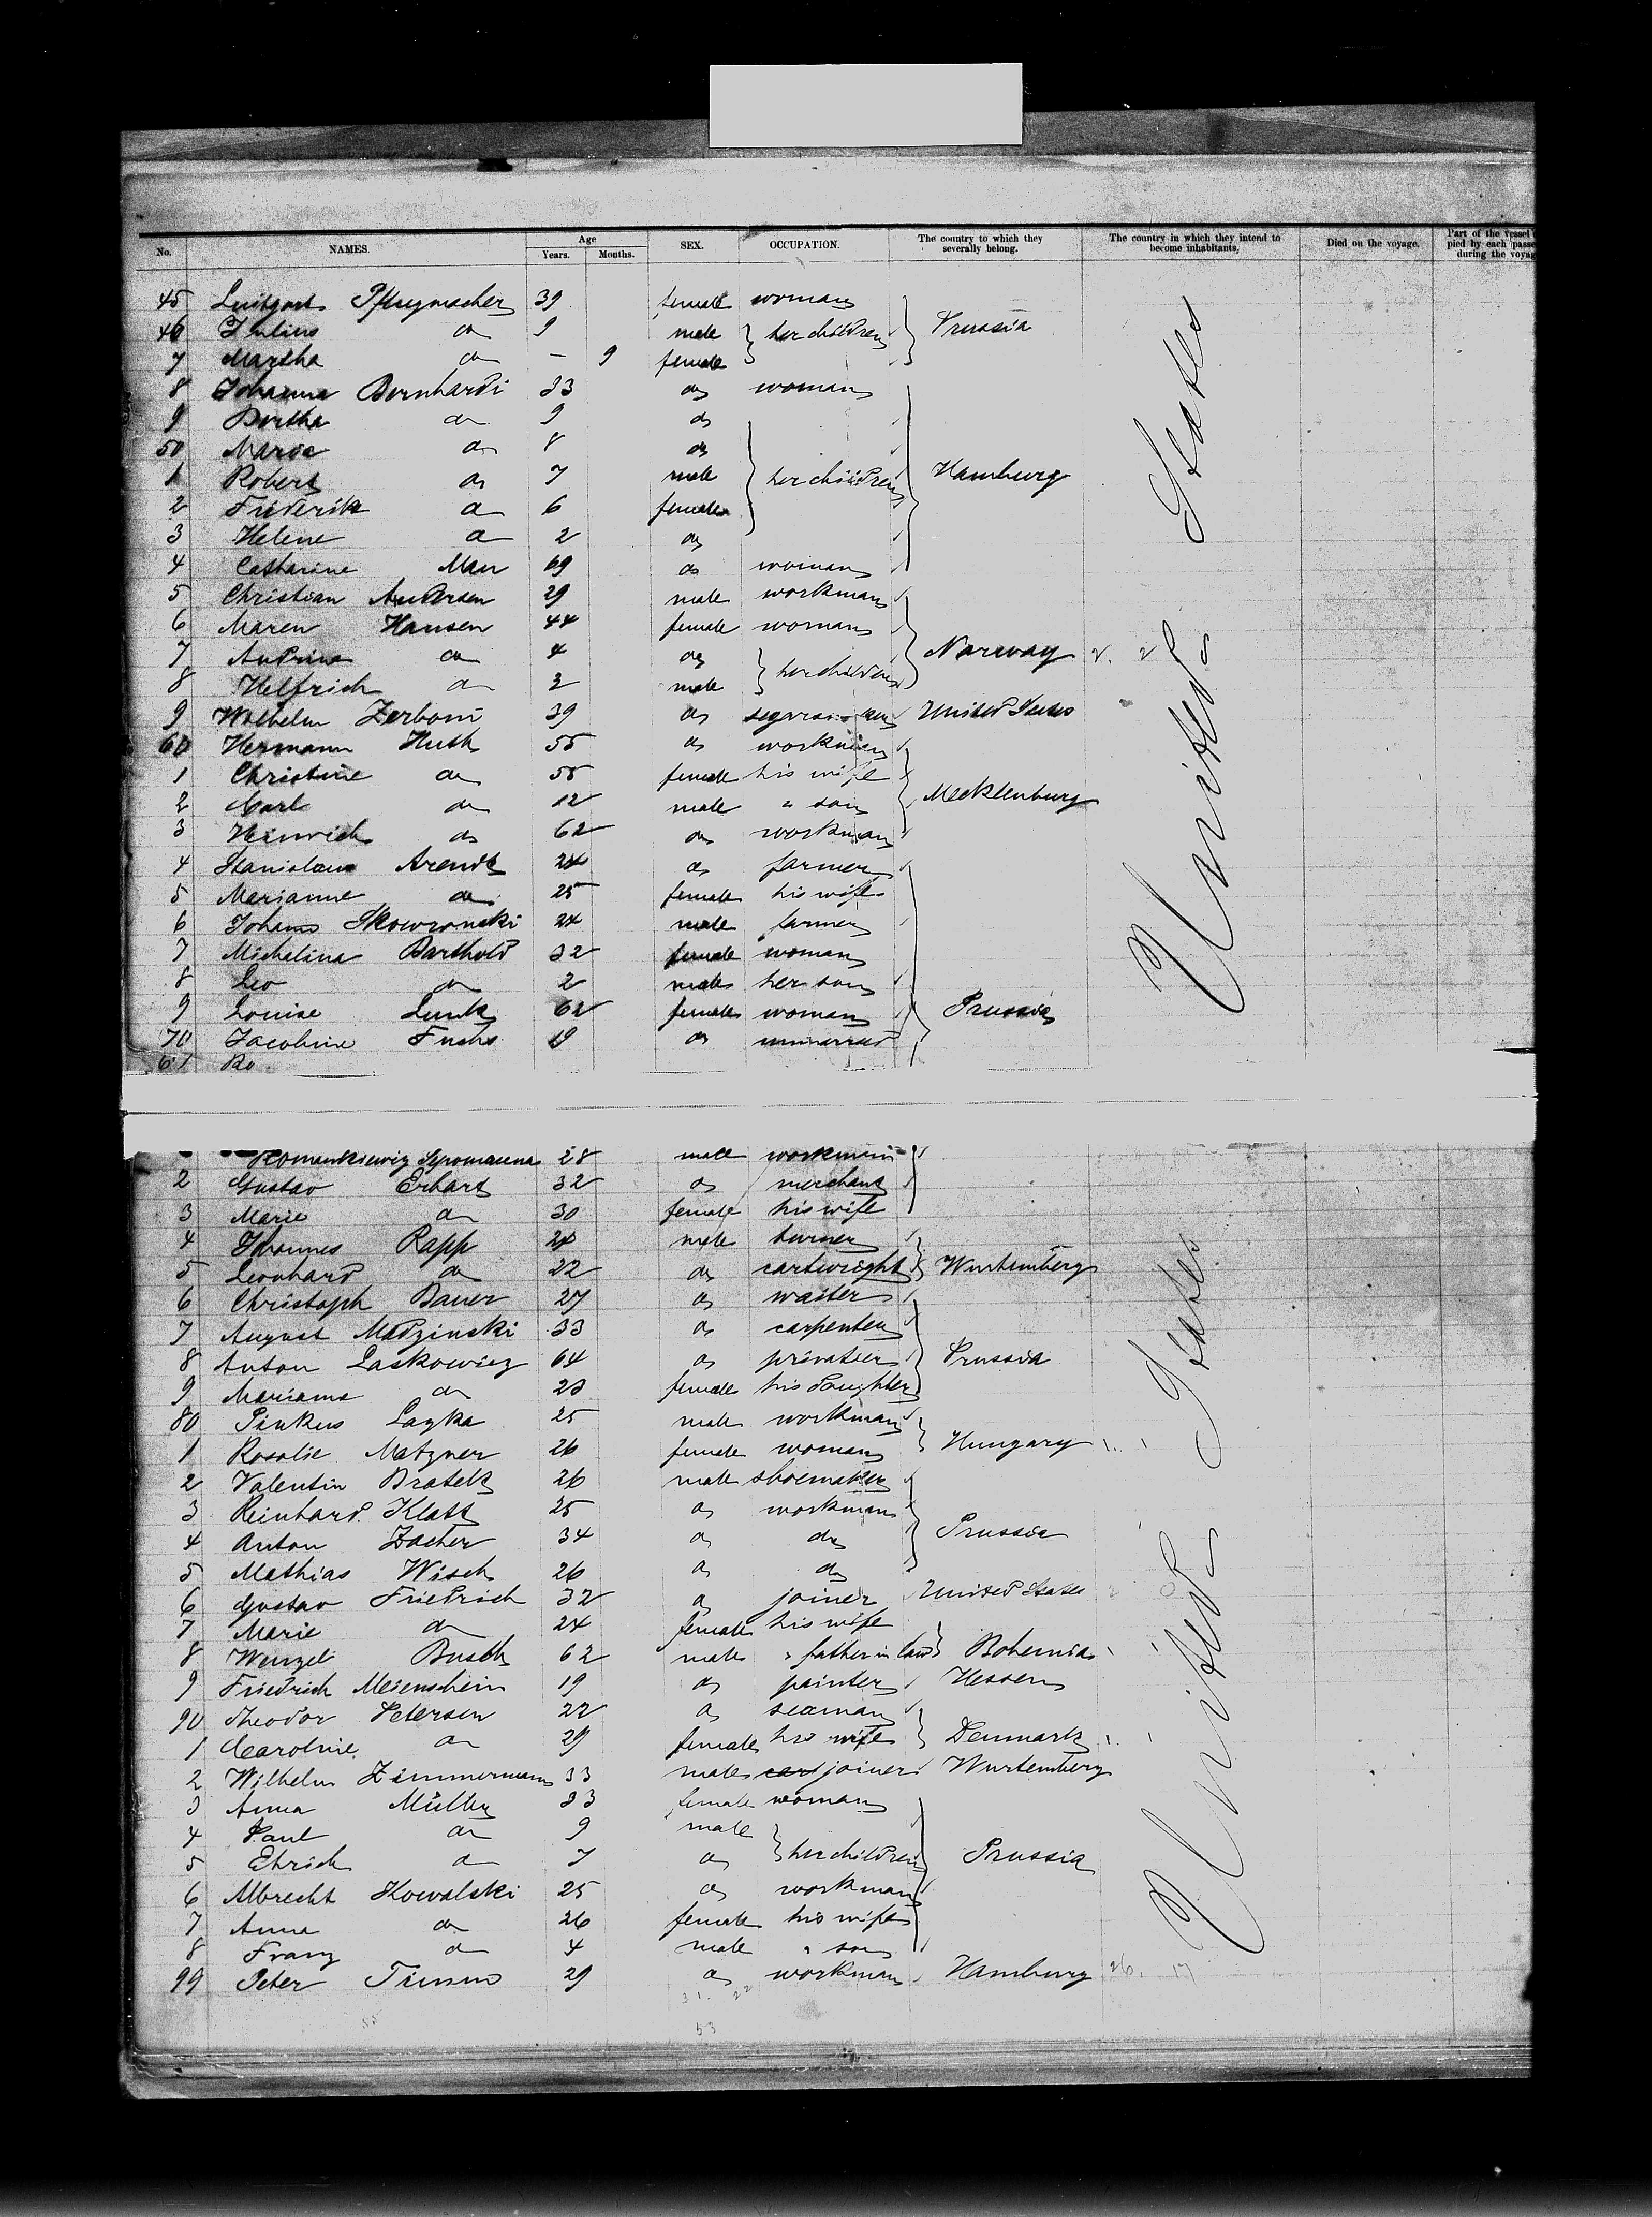 No. NAMES. Age Years. Months. SEX. OCCUPATION. The country to which they severally belong. The country in which they intend to become inhabitants, Died on the voyage. Part of the vessel pied by each passe during the voyag
45 Luitgart Pflugmacher 39 female woman
46 Julius do 9 male her children Prussia
7 Martha do - 9 female
8 Johanna Bernhardi 33 do woman
9 Bertha do 9 do
50 Marie do 8 do
1 Robert do 7 male her children Hamburg
2 Friderik do 6 female
3 Helene do 2 do
4 Catharine Mau 69 do woman
5 Christian Andersen 29 male workman
6 Maren Hansen 44 female woman
7 Andrine do 4 do her children Norway
8 Helfrich do 2 male
9 Wilhelm Zerboni 39 do United States
60 Hermann Huth 55 do workman
1 Christine do 55 female his wife
2 Carl do 12 male " son Mecklenburg
3 Heinrich do 62 do workman
4 Stanislaus Arendt 24 do farmer
5 Marianne do 25 female his wife
6 Johann Skowronski 24 male farmer
7 Michalina Barthold 32 female woman
8 Leo do 2 male her son
9 Louise Lunk 62 female woman Prussia
70 Jacobine Fuchs 19 do unmarried
61 Ro
Romankiewig 28 male workman
2 Gustav Erhart 32 do merchant
3 Marie do 30 female his wife
4 Johannes Rapp 24 male turner
5 Leonhard do 22 do cartwright Wurtemberg
6 Christoph Bauer 27 do waiter
7 August Madzinski 33 do carpenter
8 Anton Laskowicz 64 do privatier Prussia
9 Marianna do 23 female his daughter
80 Pinkus Layka 25 male workman
1 Rosalie Matzner 26 female woman Hungary
2 Valentin Bratek 26 male shoemaker
3 Reinhard Klatt 25 do workman
4 Anton Zacher 34 do do Prussia
5 Mathias Wisch 26 do do
6 Gustav Friedrich 32 do joiner United States
7 Marie do 24 female his wife
8 Wenzel Busch 62 male " father in law Bohemia
9 Friedrich Meienschein 19 do painter Hessen
90 Theodor Petersen 22 do seaman
1 Caroline do 29 female his wife Denmark
2 Wilhelm Zimmermann 33 male joiner Wurtemberg
3 Anna Müller 33 female woman
4 Paul do 9 male
5 Ehrich do 7 do her children Prussia
6 Albrecht Kowalski 25 do workman
7 Anna do 26 female his wife
8 Franz do 4 male " son
99 Peter Timm 29 do workman Hamburg
United States
United States